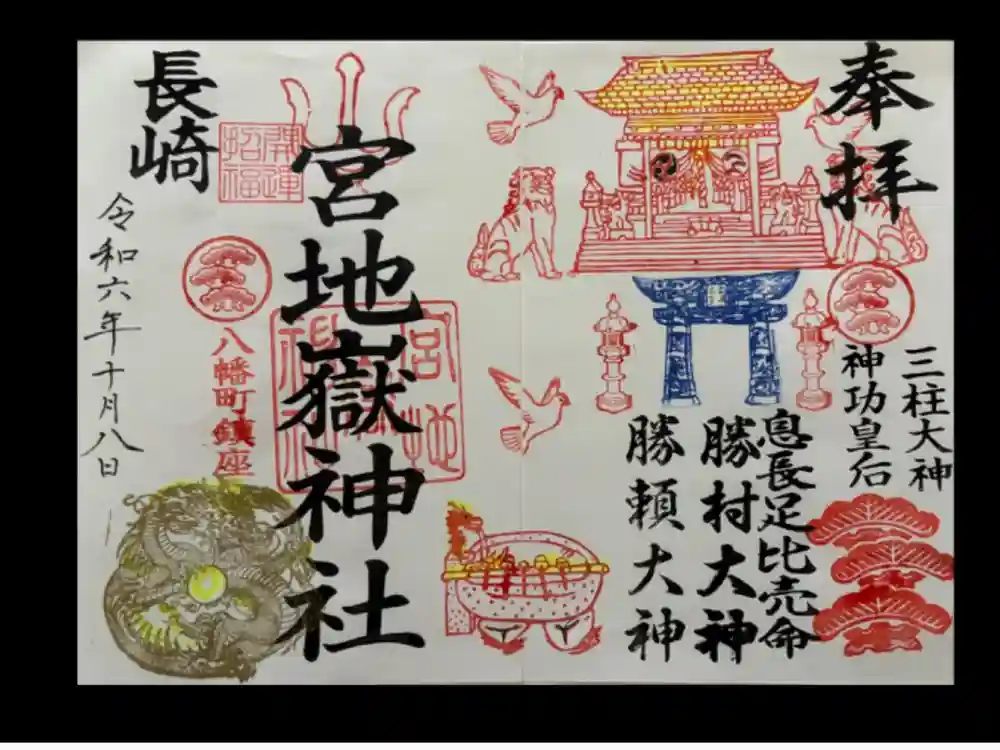 奉拝
三柱大神
神功皇后
息長足比売命
勝村大神
勝頼大神
宮地嶽神社
長崎
開運
招福
八幡町鎮座
令和六年十月八日